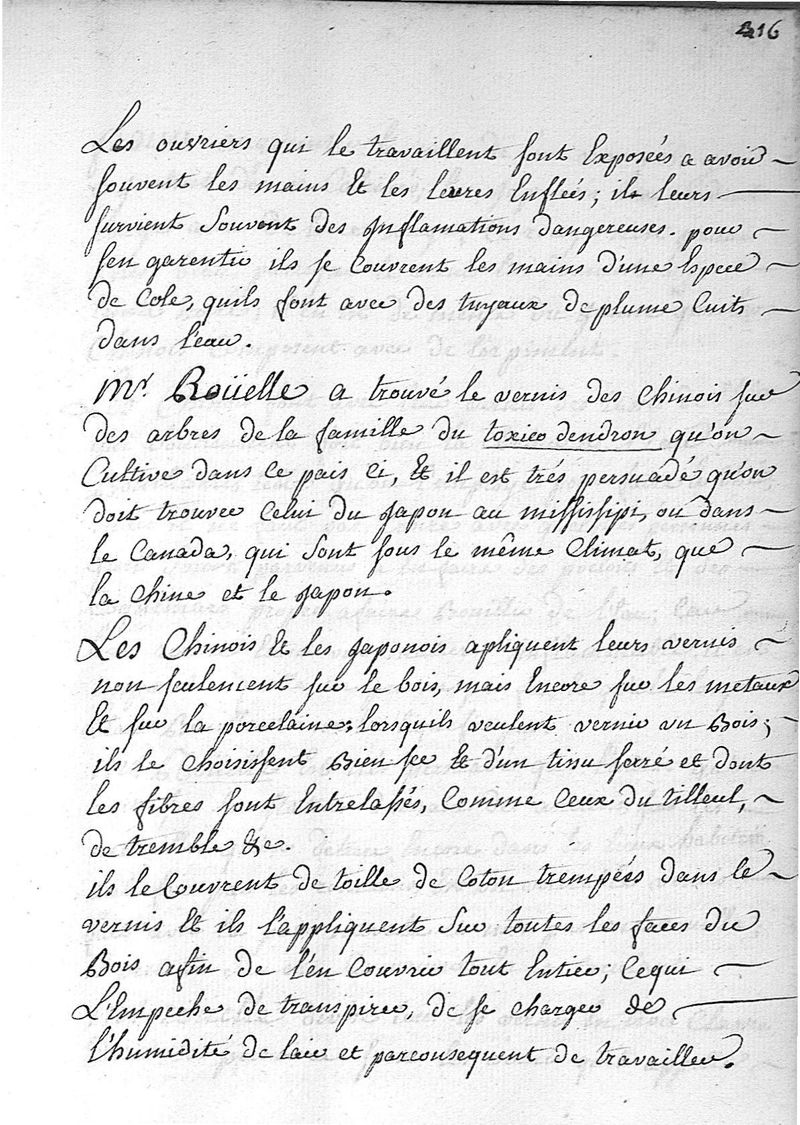 316
Les ouvriers qui le travaillent sont Exposées a avoir
souvent les mains & les levres Enflées; il leurs
survient souvent des Inflamations dangereuses. pour
s'en garentir ils se Couvrent les mains d'une Espece
de Cole, quils font avec des tuyaux de plume Cuits
dans l'eau.
Mr. Roüelle a trouvé le vernis des Chinois sur
des arbres de la famille du toxico dendron qu'on
Cultive dans Ce pais Ci, & il est trés persuadé qu'on
doit trouver Celui du Japon au mississipi, ou dans
le Canada, qui sont sous le même Climat, que
la Chine et le Japon.
Les Chinois & les Japonois apliquent leurs vernis
non seulement sur le bois, mais Encore sur les metaux
& sur la porcelaine; lorsquils veulent vernir un Bois;
ils le choisissent Bien sec & d'un tissu serré et dont
les fibres sont Entrelassés, Comme Ceux du tilleul,
de tremble &c.
ils le Couvrent de toille de Coton trempées dans le
vernis & ils l'appliquent sur toutes les faces du
Bois afin de l'en Couvrir tout Entier; Cequi
L'Empeche de transpirer, de se charger de
l'humidité de lair et parconsequent de travailler.